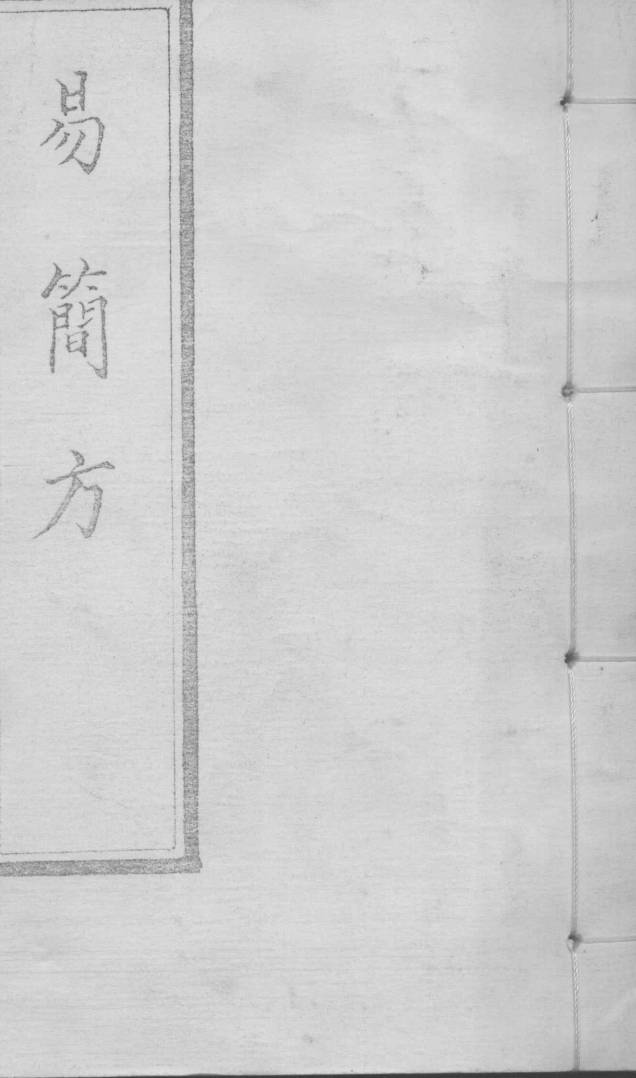 易簡方